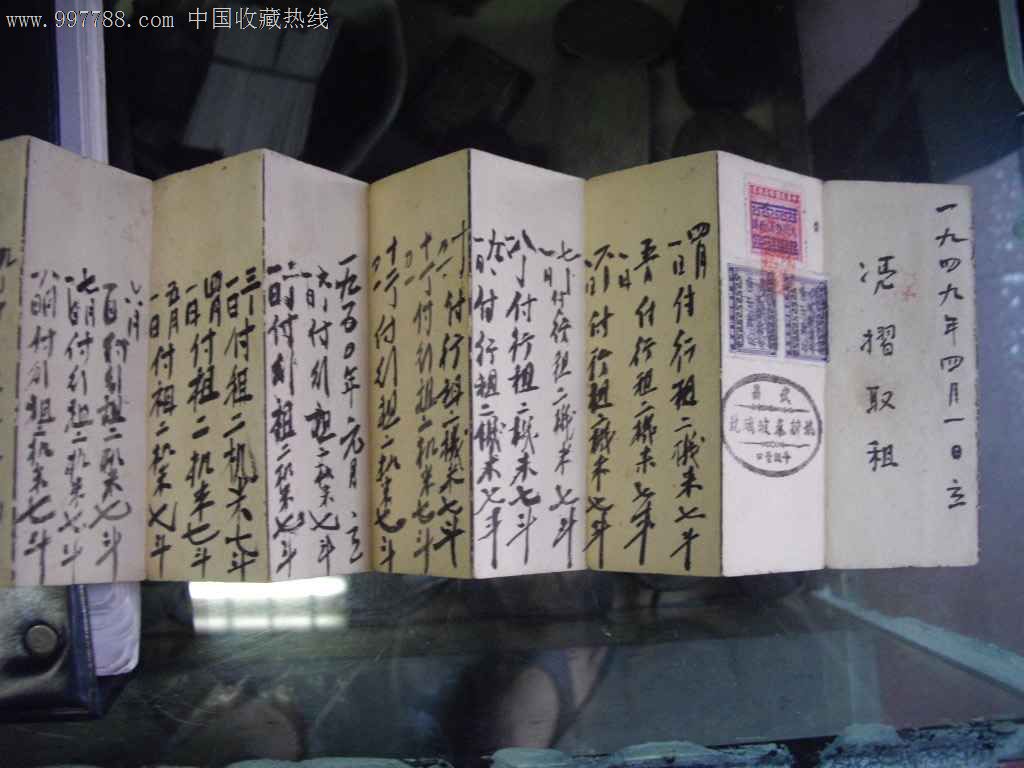 www.997788.com 中国收藏热线
一九四九年四月一日立
凭摺取租
四月一日付行租二機米七斗
五月一日付行租二機米七斗
六月一日付行租二機米七斗
七月一日付行租二機米七斗
八月付行租二機米七斗
九月一日付行租二機米七斗
十月付行租二機米七斗
十一月付行租二机米七斗
十二月付行租二机米七斗
一九五〇年元月立
一日付行租二机米七斗
二月一日付行租二机米七斗
三月一日付租二机米七斗
四月一日付租二机米七斗
五月一日付租二机米七斗
六月一日付行租二机米七斗
七月一日付行租二机米七斗
八月付行租二机米七斗